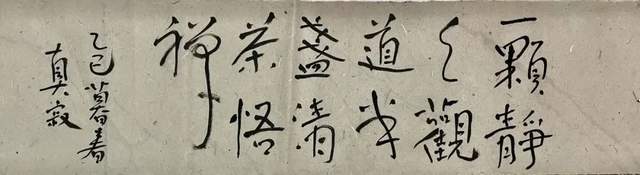 一顆靜
心觀
道半
盞清
茶悟
禪
乙巳暮春
真寂